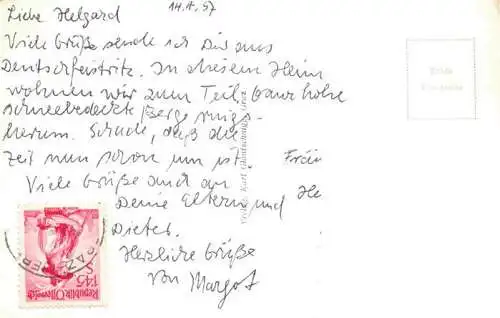 14.1.57
Liebe Helgard
Viele Grüße sende ich Dir aus
Deutschfeistritz. In diesem Heim
wohnen wir zum Teil. Ganz hohe
schneebedeckte Berge rings-
herum. Schade, daß die
Zeit nun schon um ist.
Viele Grüße auch an
Deine Eltern und
Dieter.
Herzliche Grüße
von Margot
Fräu
He
Graz
Republik Österreich
S 1·45